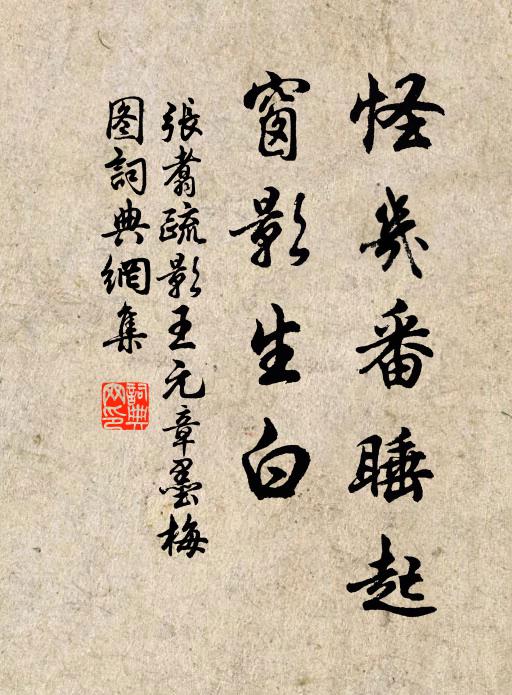 怪幾番睡起
窗影生白
張翥疏影王元章墨梅
图詞典網集
詞典
网印